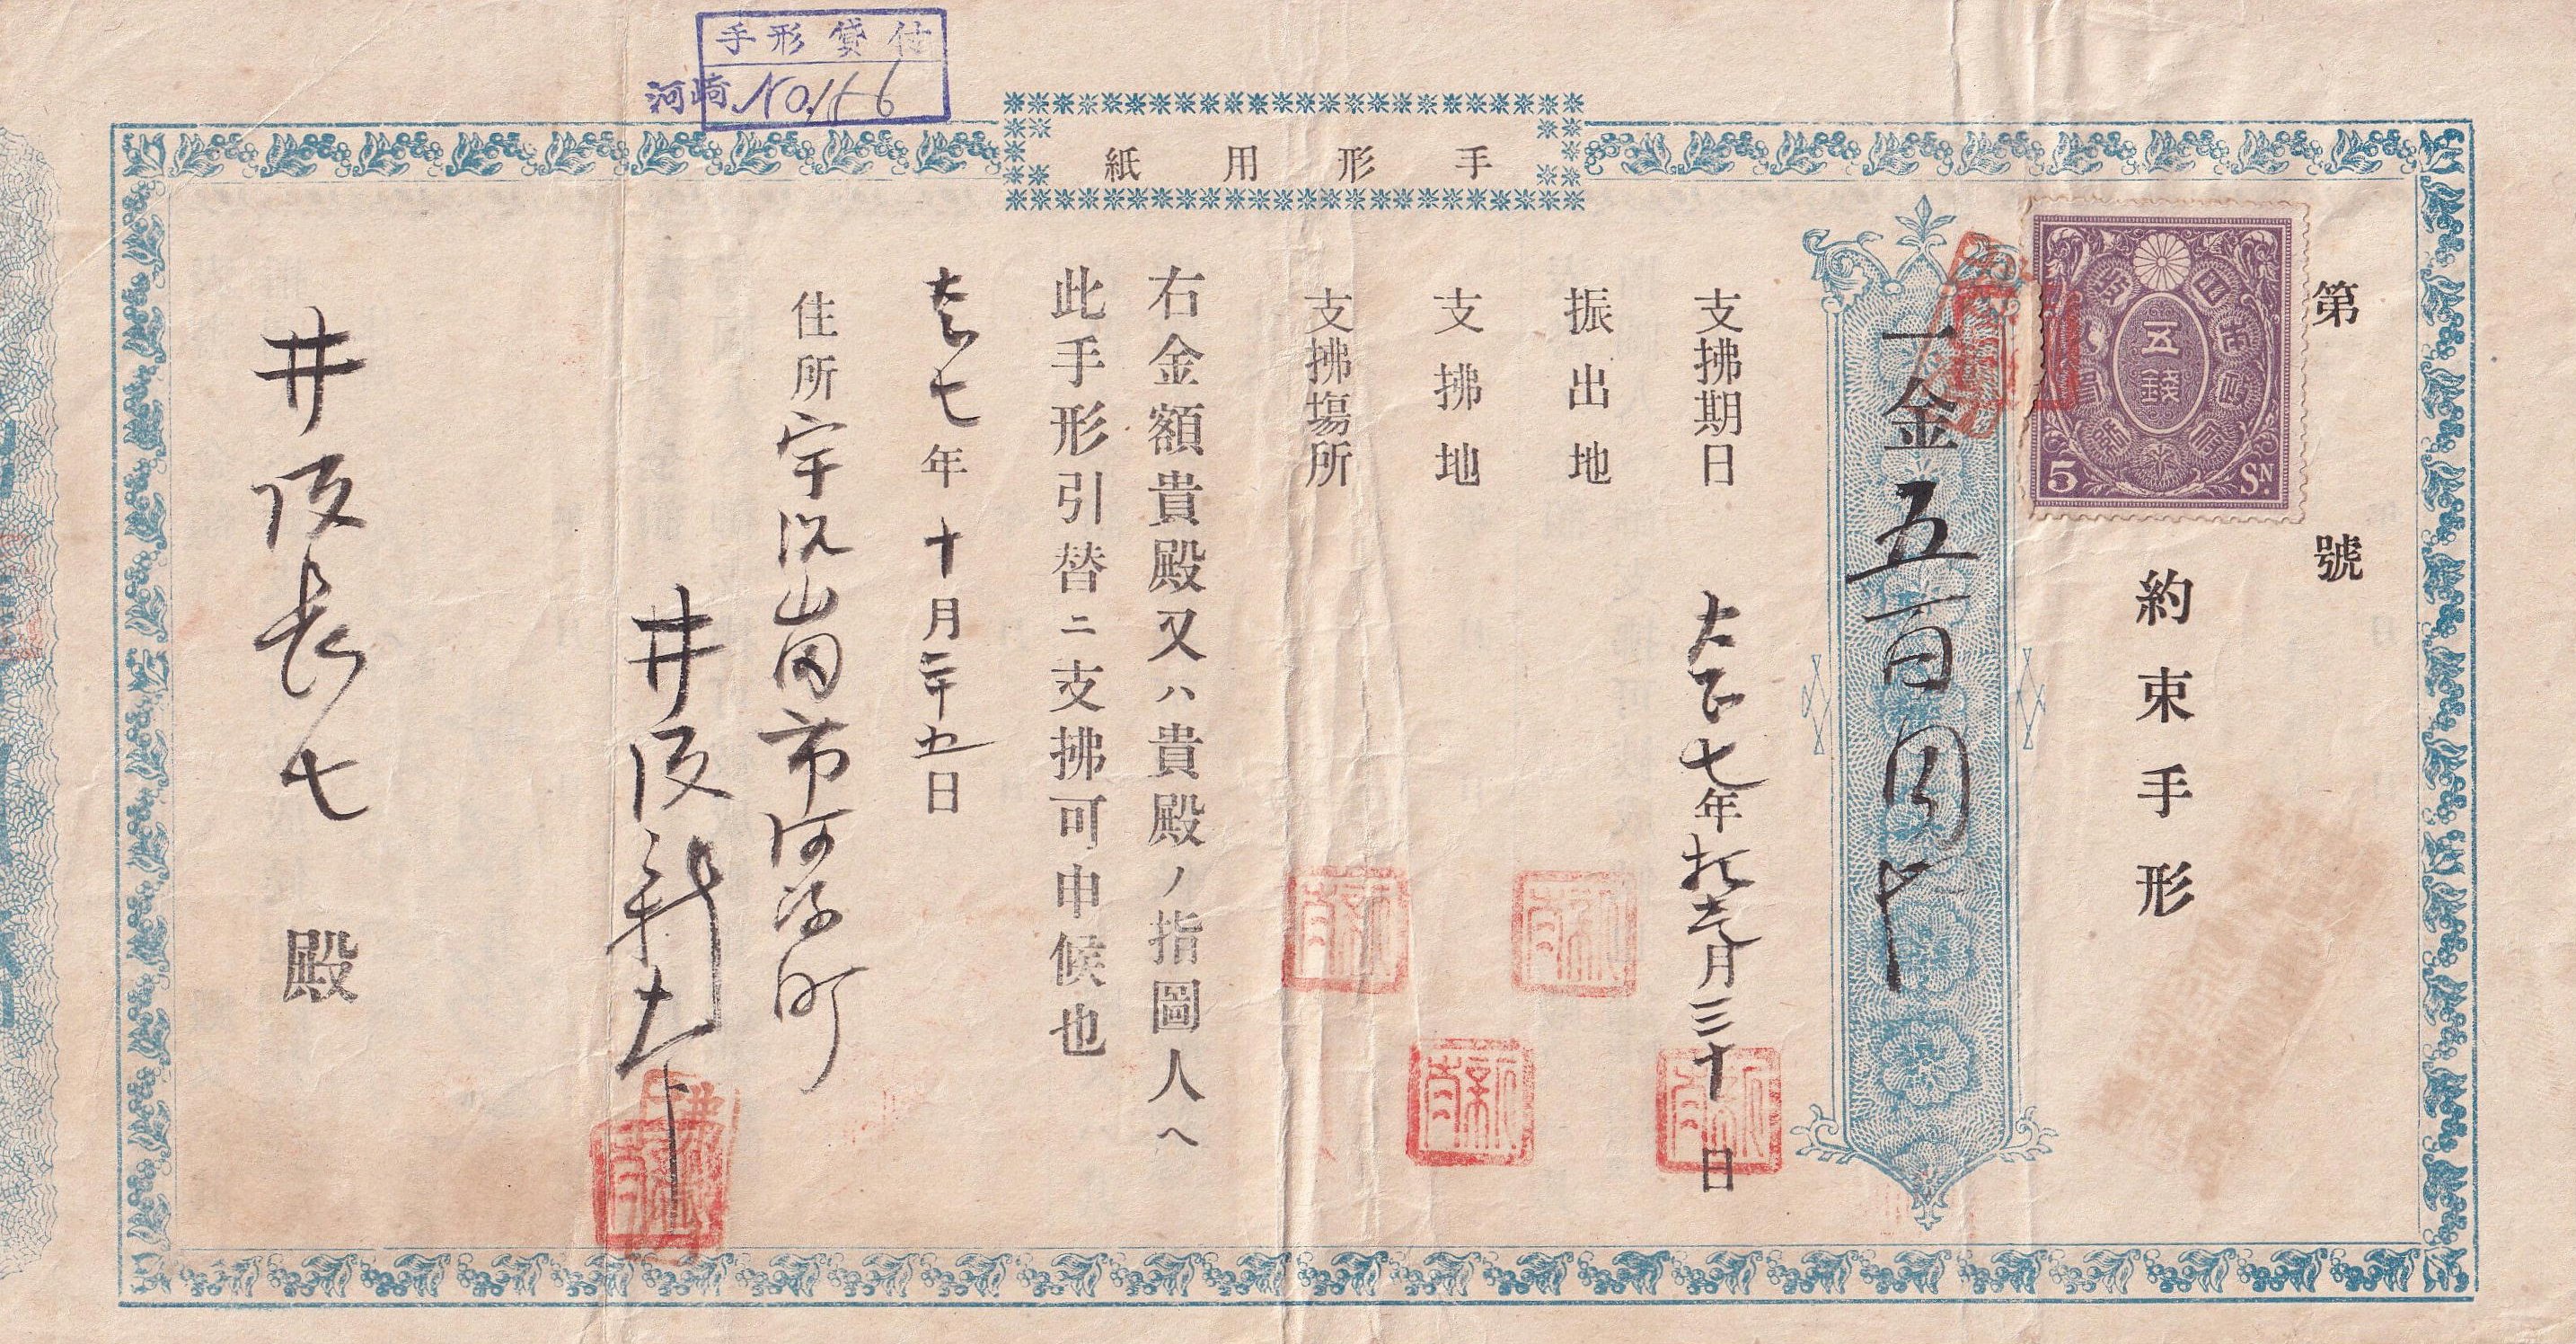 手形貸付
河崎 No.166
手形用紙
第 號
五錢
5 SN.
約束手形
一金五百圓也
支拂期日 大正七年拾弐月三十日
振出地
支拂地
支拂塲所
右金額貴殿又ハ貴殿ノ指圖人ヘ
此手形引替ニ支拂可申候也
大正七年十月二十五日
住所 宇治山田市河崎町
井阪新
井阪長七 殿